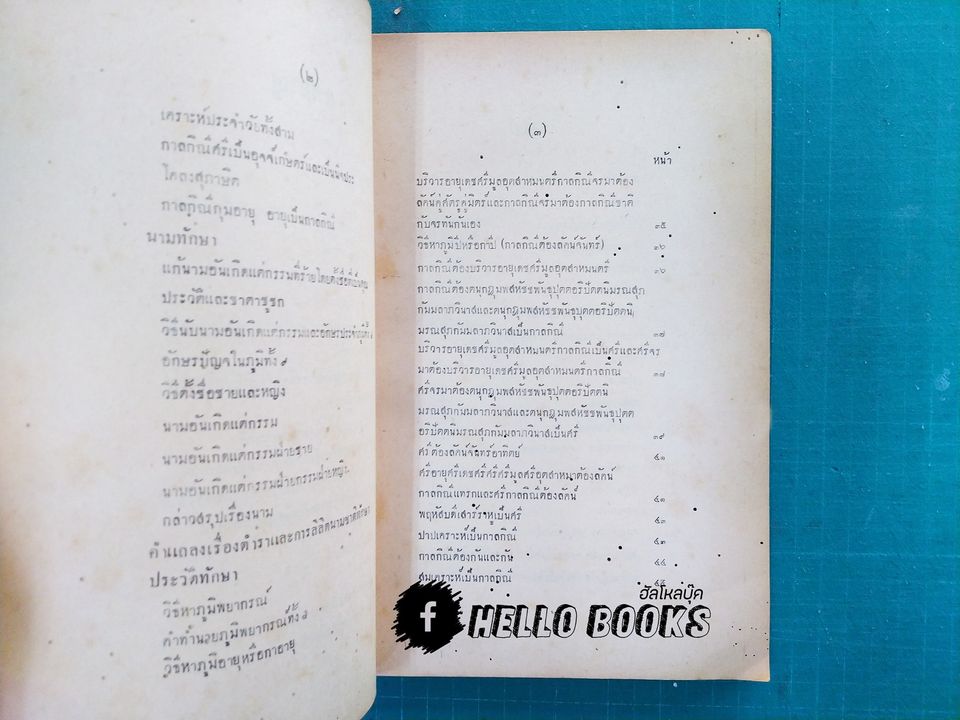 (๒)
เคราะห์ประจำวัยทั้งสาม
กาลกิณีศรีเป็นอุจจ์เกษตร์และเป็นนิจประ
โคลงสุภาษิต
กาลกิณีกุมอายุ อายุเป็นกาลกิณี
นามทักษา
แก้นามอันเกิดแต่กรรมที่ร้ายโดยตั้งชื่อ
ประวัติและธาตาชูชก
วิธีนับนามอันเกิดแต่กรรมและอักษรประจำ
อักษรปัญจในภูมิทั้ง ๙
วิธีตั้งชื่อชายและหญิง
นามอันเกิดแต่กรรม
นามอันเกิดแต่กรรมฝ่ายชาย
นามอันเกิดแต่กรรมฝ่ายกรรมฝ่ายหญิง
กล่าวสรุปเรื่องนาม
คำแถลงเรื่องตำราและการลิลิตนามชาติทักษา
ประวัติทักษา
วิธีหาภูมิพยากรณ์
คำทำนวยภูมิพยากรณ์ทั้ง ๘
วิธีหาภูมิอายุหรือกาอายุ
(๓)
หน้า
บริวารอายุเดชศรีมูลอุตสาหมนตรีกาลกิณีจรมาต้อง
ลัคน์คู่ศัตรูคู่มิตร์และกาลกิณีจรมาต้องกาลกิณีชาติ
กับจรทันกันเอง ๓๕
วิธีหาภูมิปีหรือกาปี (กาลกิณีต้องลัคน์จันทร์) ๓๖
กาลกิณีต้องบริวารอายุเดชศรีมูลอุตสาหมนตรี ๓๖
กาลกิณีต้องตนุกฎุมพสหัชชพันธุปุตตอริปัตตนิมรณสุภ
กัมมลาภวินาสและตนุกฎุมพสหัชชพันธุปุตตอริปัตตนิ
มรณสุภกัมมลาภวินาสเป็นกาลกิณี ๓๗
บริวารอายุเดชศรีมูลอุตสาหมนตรีกาลกิณีเป็นศรีและศรีจร
มาต้องบริวารอายุเดชศรีมูลอุตสาหมนตรีกาลกิณี ๓๗
ศรีจรมาต้องตนุกฎุมพสหัชชพันธุปุตตอริปัตตนิ
มรณสุภกัมมลาภวินาสและตนุกฎุมพสหัชชพันธุปุตต
อริปัตตนิมรณสุภกัมมลาภวินาสเป็นศรี ๓๙
ศรีต้องลัคน์จันทร์อาทิตย์ ๔๑
ศรีอายุศรีเดชศรีศรีศรีมูลศรีอุตสาหมาต้องลัคน์
กาลกิณีแทรกและศรีกาลกิณีต้องลัคน์ ๔๑
พฤหัสบดีเสาร์ราหูเป็นศรี ๔๓
ปาปเคราะห์เป็นกาลกิณี ๔๓
กาลกิณีต้องกันและกัน ๔๔
สมเคราะห์เป็นกาลกิณี ๔๕
ฮัลโหลบุ๊ค
f HELLO BOOKS